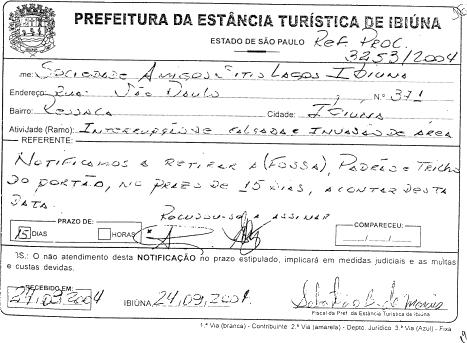 PREFEITURA DA ESTÂNCIA TURÍSTICA DE IBIÚNA
ESTADO DE SÃO PAULO Ref. PROC.
3253/2004
me: SOCIEDADE AMIGOS SITIO LAGOS IBIUNA
Endereço: Rua: SÃO PAULO N.º 371
Bairro: RESSACA Cidade: IBIUNA
Atividade (Ramo): INTERRUPÇÃO DE CALÇADA E INVASÃO DE ÁREA
REFERENTE:
NOTIFICAMOS A RETIRAR A (FOSSA), PADRÃO E TRILHO
DO PORTÃO, NO PRAZO DE 15 DIAS, A CONTAR DESTA
DATA.
RECUSOU-SE A ASSINAR
PRAZO DE: COMPARECEU:
15 DIAS HORAS / /
BS.: O não atendimento desta NOTIFICAÇÃO no prazo estipulado, implicará em medidas judiciais e as multas
e custas devidas.
RECEBIDO EM:
24,09,2004 IBIÚNA, 24,09,2004
Fiscal da Pref. da Estância Turística de Ibiúna
1.ª Via (branca) - Contribuinte 2.ª Via (amarela) - Depto. Jurídico 3.ª Via (Azul) - Fixa